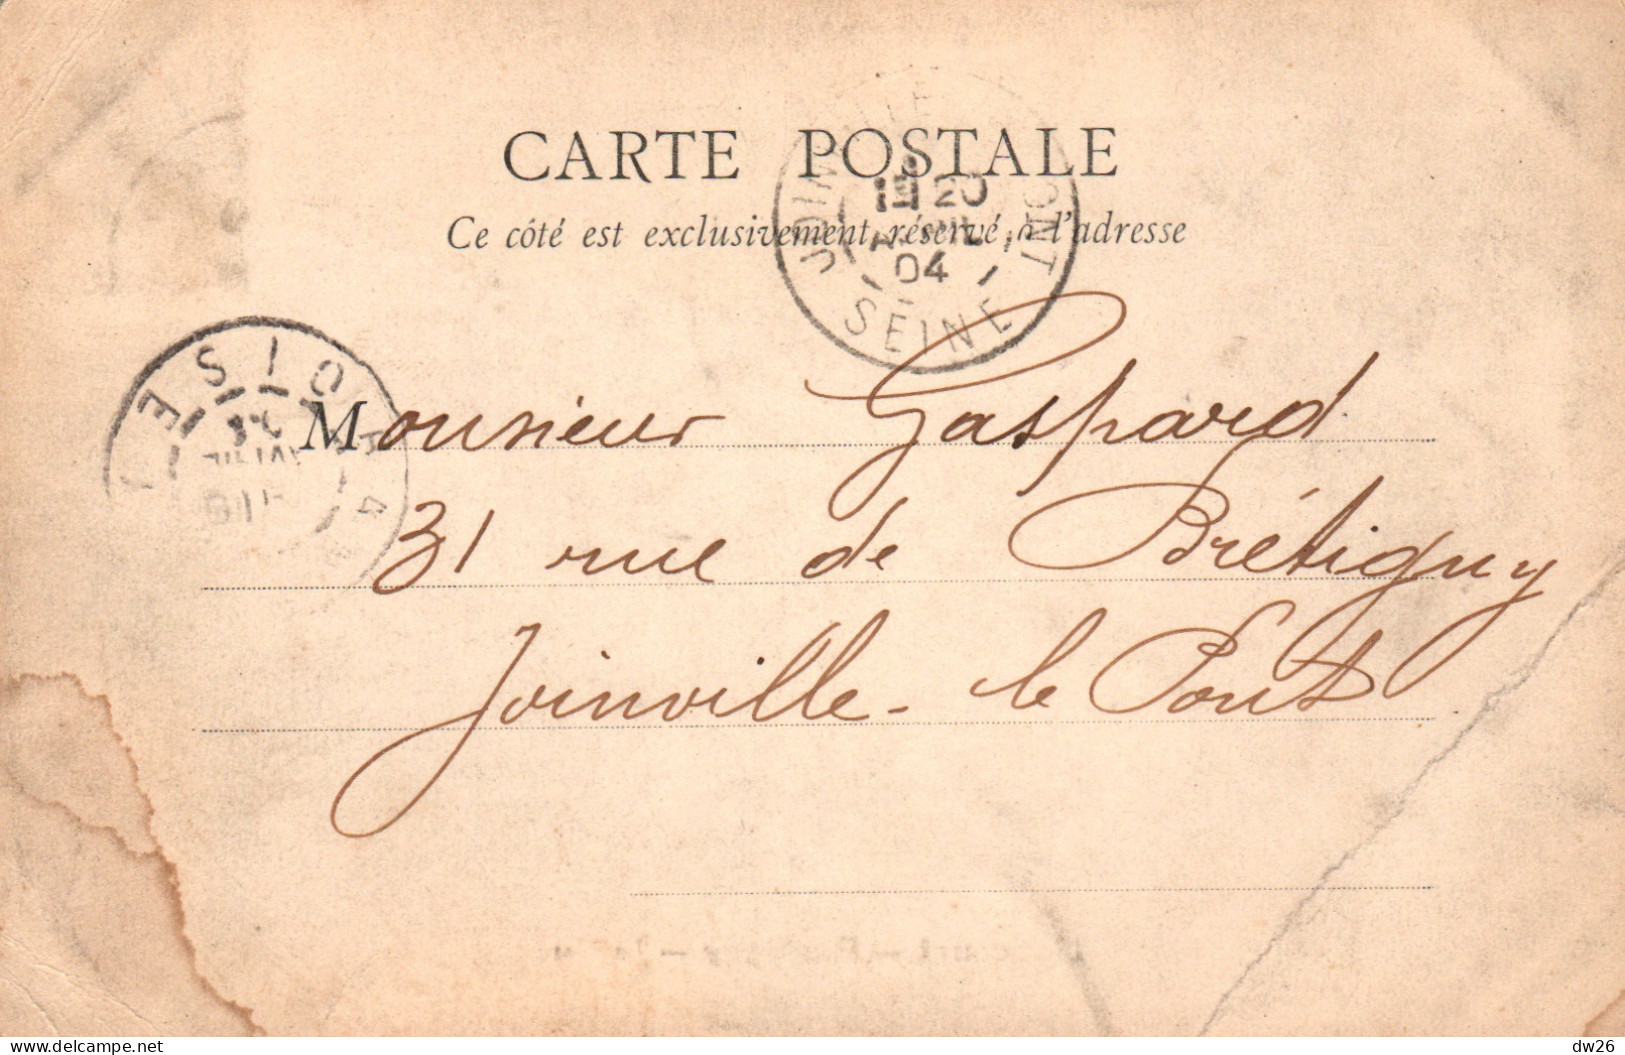 CARTE POSTALE
Ce côté est exclusivement réservé à l'adresse
JOINVILLE PONT
20
AVRIL
04
SEINE
OISE
Monsieur Gaspard
31 rue de Brétigny
Joinville-le Pont
dw26